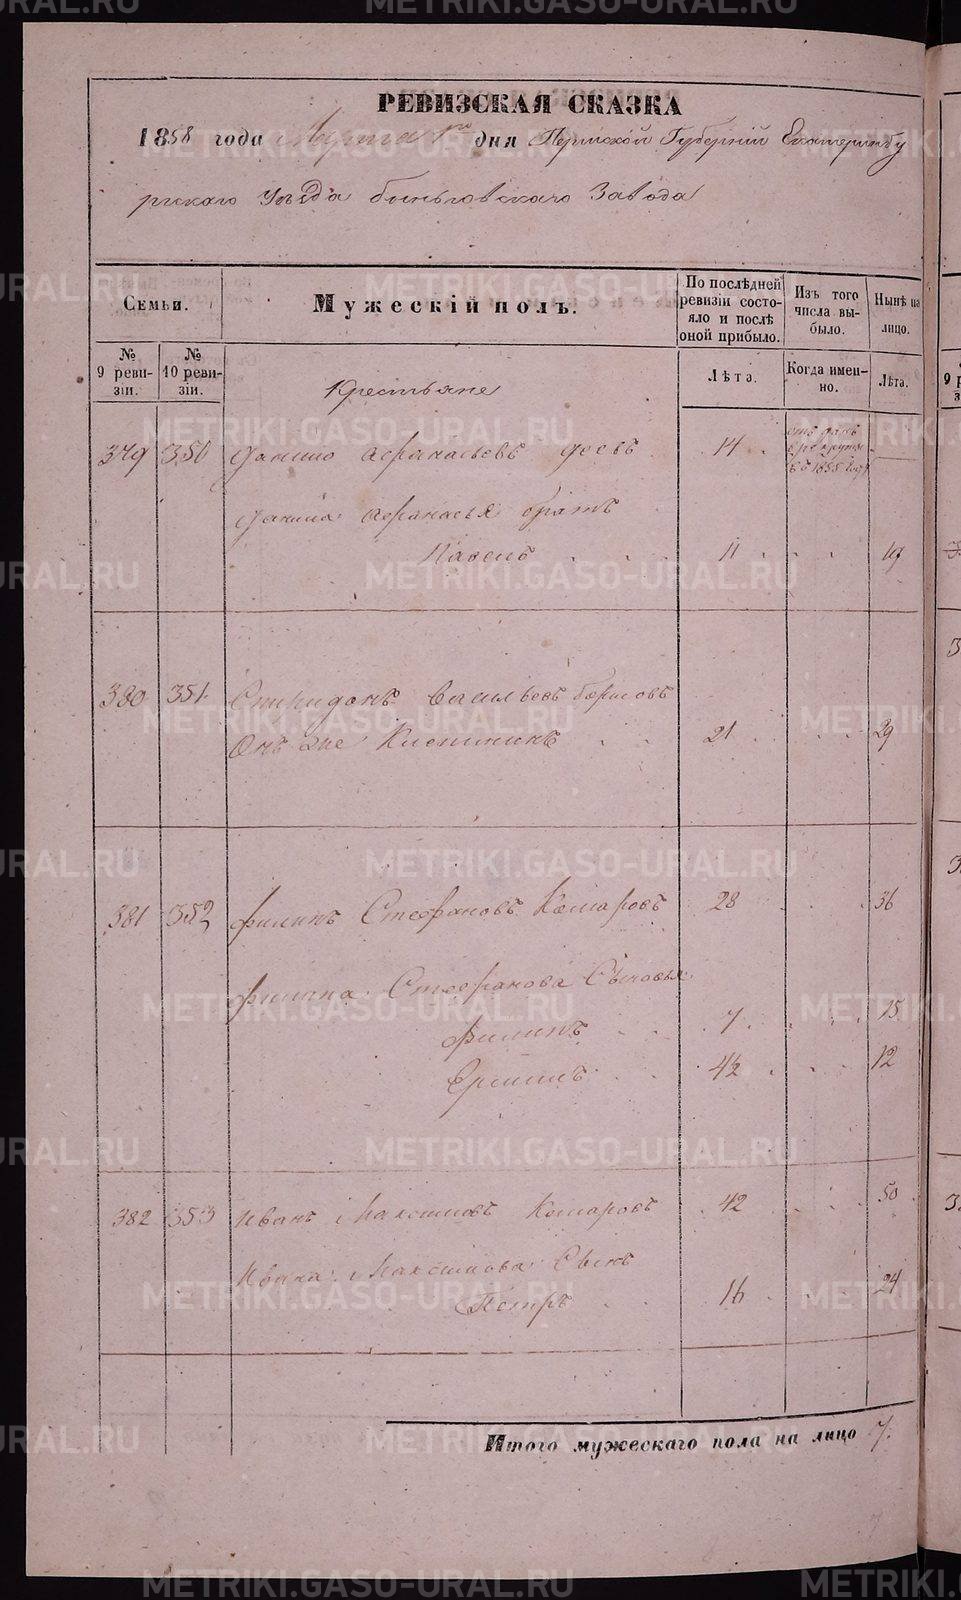 РЕВИЗСКАЯ СКАЗКА
1858 года Марта 1го дня Пермской Губерніи Екатеринбу
ргскаго Уѣзда Быньговскаго Завода
Семьи.
Мужескій полъ.
По послѣдней ревизіи состояло и послѣ оной прибыло.
Изъ того числа выбыло.
Нынѣ на лицо.
№ 9 ревизіи.
№ 10 ревизіи.
Лѣта.
Когда именно.
Лѣта.
Крестьяне
379 350 Данило Афанасьевъ 14 отданъ в рекруты въ 1855 году
Данила Афанасья братъ
Павелъ 11 19
380 351 Спиридонъ Васильевъ Борисовъ
Онъ же 21 29
381 352 Филипъ Стефановъ Комаровъ 28 36
Филипа Стефанова Сыновья
Филипъ 7 15
Ермилъ 4½ 12
382 353 Иванъ Максимовъ Комаровъ 42 50
Ивана Максимова Сынъ
Петръ 16 24
Итого мужескаго пола на лицо 7.
METRIKI.GASO-URAL.RU